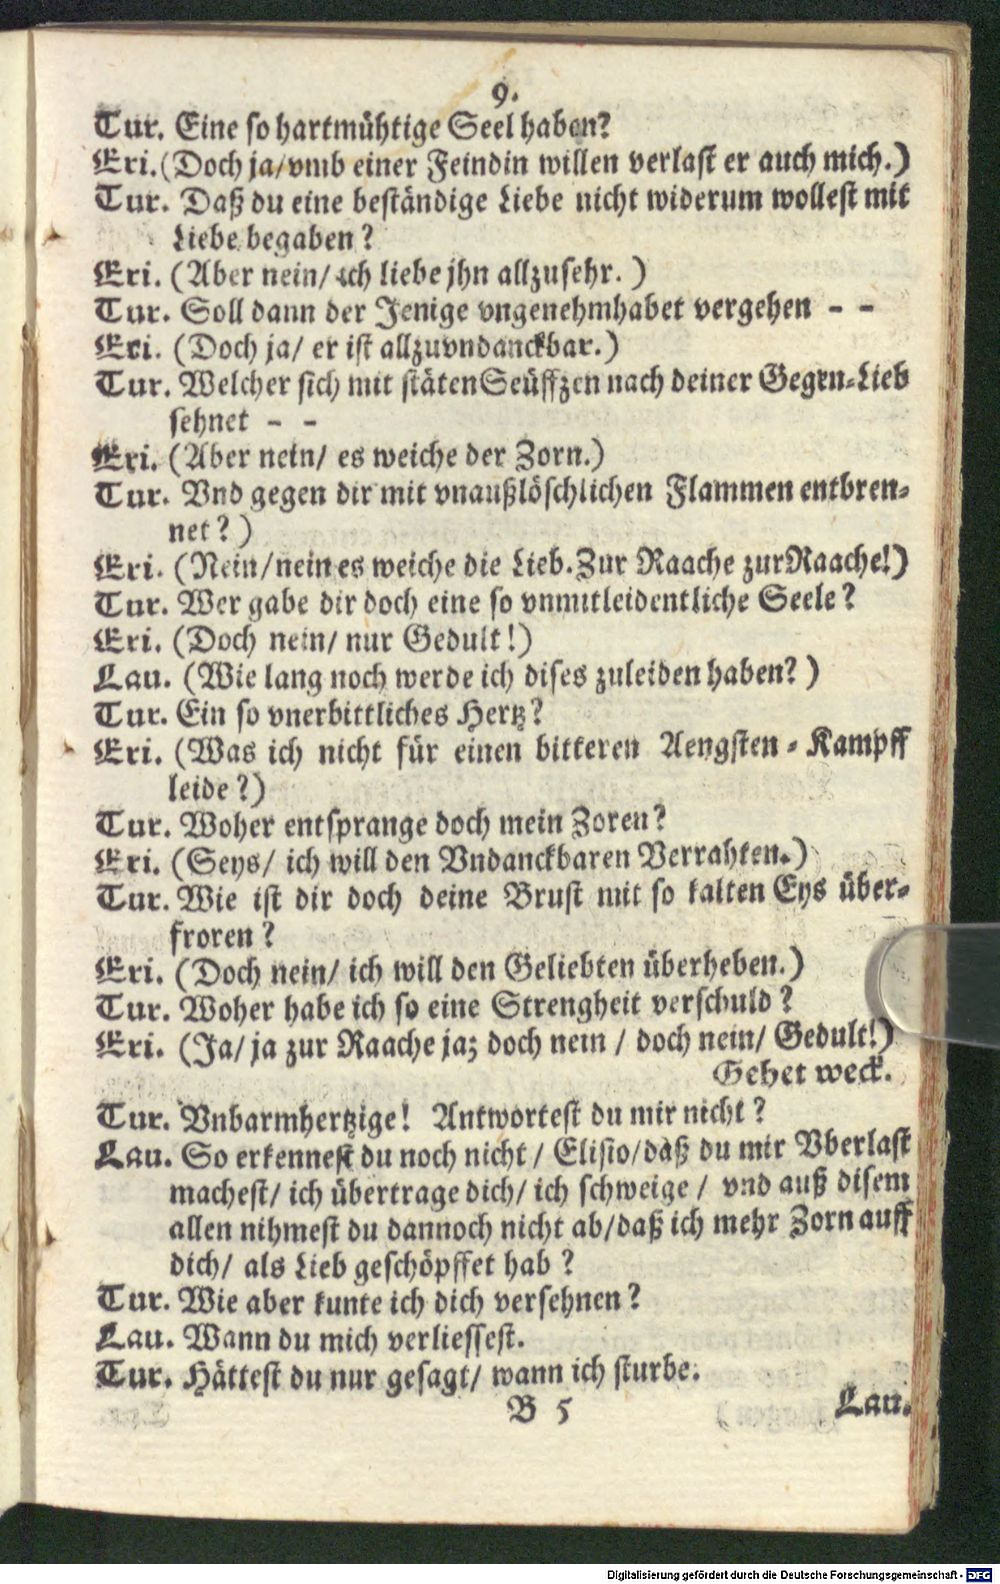 9.
Tur. Eine so hartmühtige Seel haben?
Eri. (Doch ja/vmb einer Feindin willen verlast er auch mich.)
Tur. Daß du eine beständige Liebe nicht widerum wollest mit
Liebe begaben?
Eri. (Aber nein/ ich liebe jhn allzusehr.)
Tur. Soll dann der Jenige vngenehmhabet vergehen - -
Eri. (Doch ja/ er ist allzuvndanckbar.)
Tur. Welcher sich mit stäten Seüffzen nach deiner Gegen-Lieb
sehnet - -
Eri. (Aber nein/ es weiche der Zorn.)
Tur. Vnd gegen dir mit vnaußlöschlichen Flammen entbren-
net?)
Eri. (Nein/nein es weiche die Lieb. Zur Raache zur Raache!)
Tur. Wer gabe dir doch eine so vnmitleidentliche Seele?
Eri. (Doch nein/ nur Gedult!)
Lau. (Wie lang noch werde ich dises zuleiden haben?)
Tur. Ein so vnerbittliches Hertz?
Eri. (Was ich nicht für einen bitteren Aengsten-Kampff
leide?)
Tur. Woher entsprange doch mein Zoren?
Eri. (Seys/ ich will den Vndanckbaren Verrahten.)
Tur. Wie ist dir doch deine Brust mit so kalten Eys über-
froren?
Eri. (Doch nein/ ich will den Geliebten überheben.)
Tur. Woher habe ich so eine Strengheit verschuld?
Eri. (Ja/ ja zur Raache ja; doch nein / doch nein/ Gedult!)
Gehet weck.
Tur. Vnbarmhertzige! Antwortest du mir nicht?
Lau. So erkennest du noch nicht / Elisio/daß du mir Vberlast
machest/ ich übertrage dich/ ich schweige / vnd auß disem
allen nihmest du dannoch nicht ab/daß ich mehr Zorn auff
dich/ als Lieb geschöpffet hab?
Tur. Wie aber kunte ich dich versehnen?
Lau. Wann du mich verliessest.
Tur. Hättest du nur gesagt/ wann ich sturbe.
B 5
Lau.
Digitalisierung gefördert durch die Deutsche Forschungsgemeinschaft - DFG